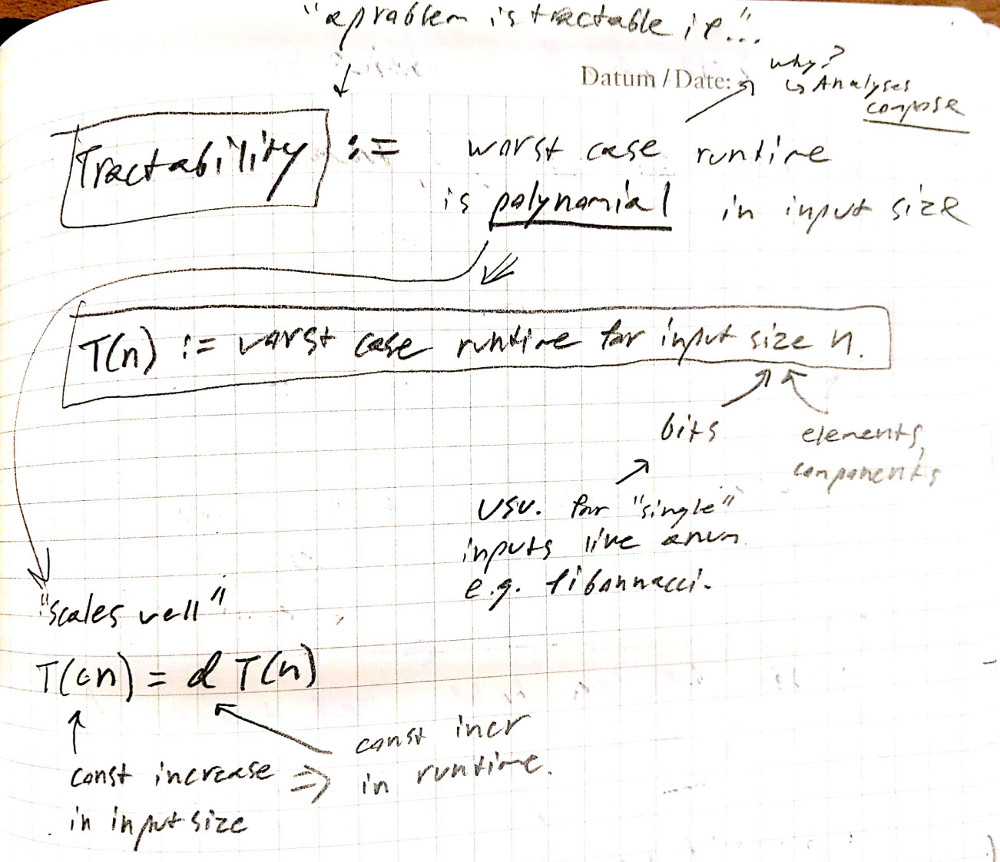 "a problem is tractable if"...
Datum / Date:
why?
↳ Analyses
compose
Tractability := worst case runtime
is polynomial in input size
T(n) := worst case runtime for input size n.
bits
elements,
components
usu. for "single"
inputs like a num
e.g. fibannacci.
"scales well"
T(cn) = d T(n)
const increase ⇒ const incr
in input size in runtime.